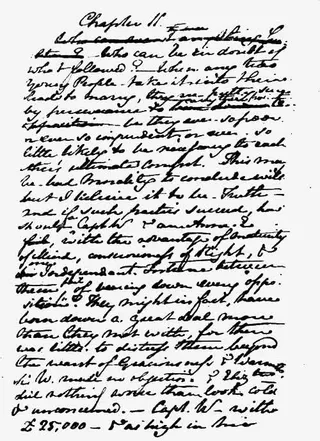 Chapter 11.
Who can be in doubt of
what followed? — When any two
Young People take it into their
heads to marry, they are pretty sure
by perseverance to carry their point —
be they ever so poor
or ever so imprudent, or ever so
little likely to be necessary to each
other's ultimate comfort. This may
be bad Morality to conclude with,
but I beleive it to be Truth —
and if such parties succeed, how
should a Capt. W— & an Anne E—
fail, with the advantage of Maturity
of Mind, consciousness of Right, &
one Independant Fortune between
them, of bearing down every oppo-
sition? They might in fact, have
born down a great deal more
than they met with, for there
was little to distress them beyond
the want of Graciousness & Warmth.
Sir W. made no objection, & Eliz:th
did nothing worse than look cold
& unconcerned. — Capt. W— with
£25,000 — & as high in his